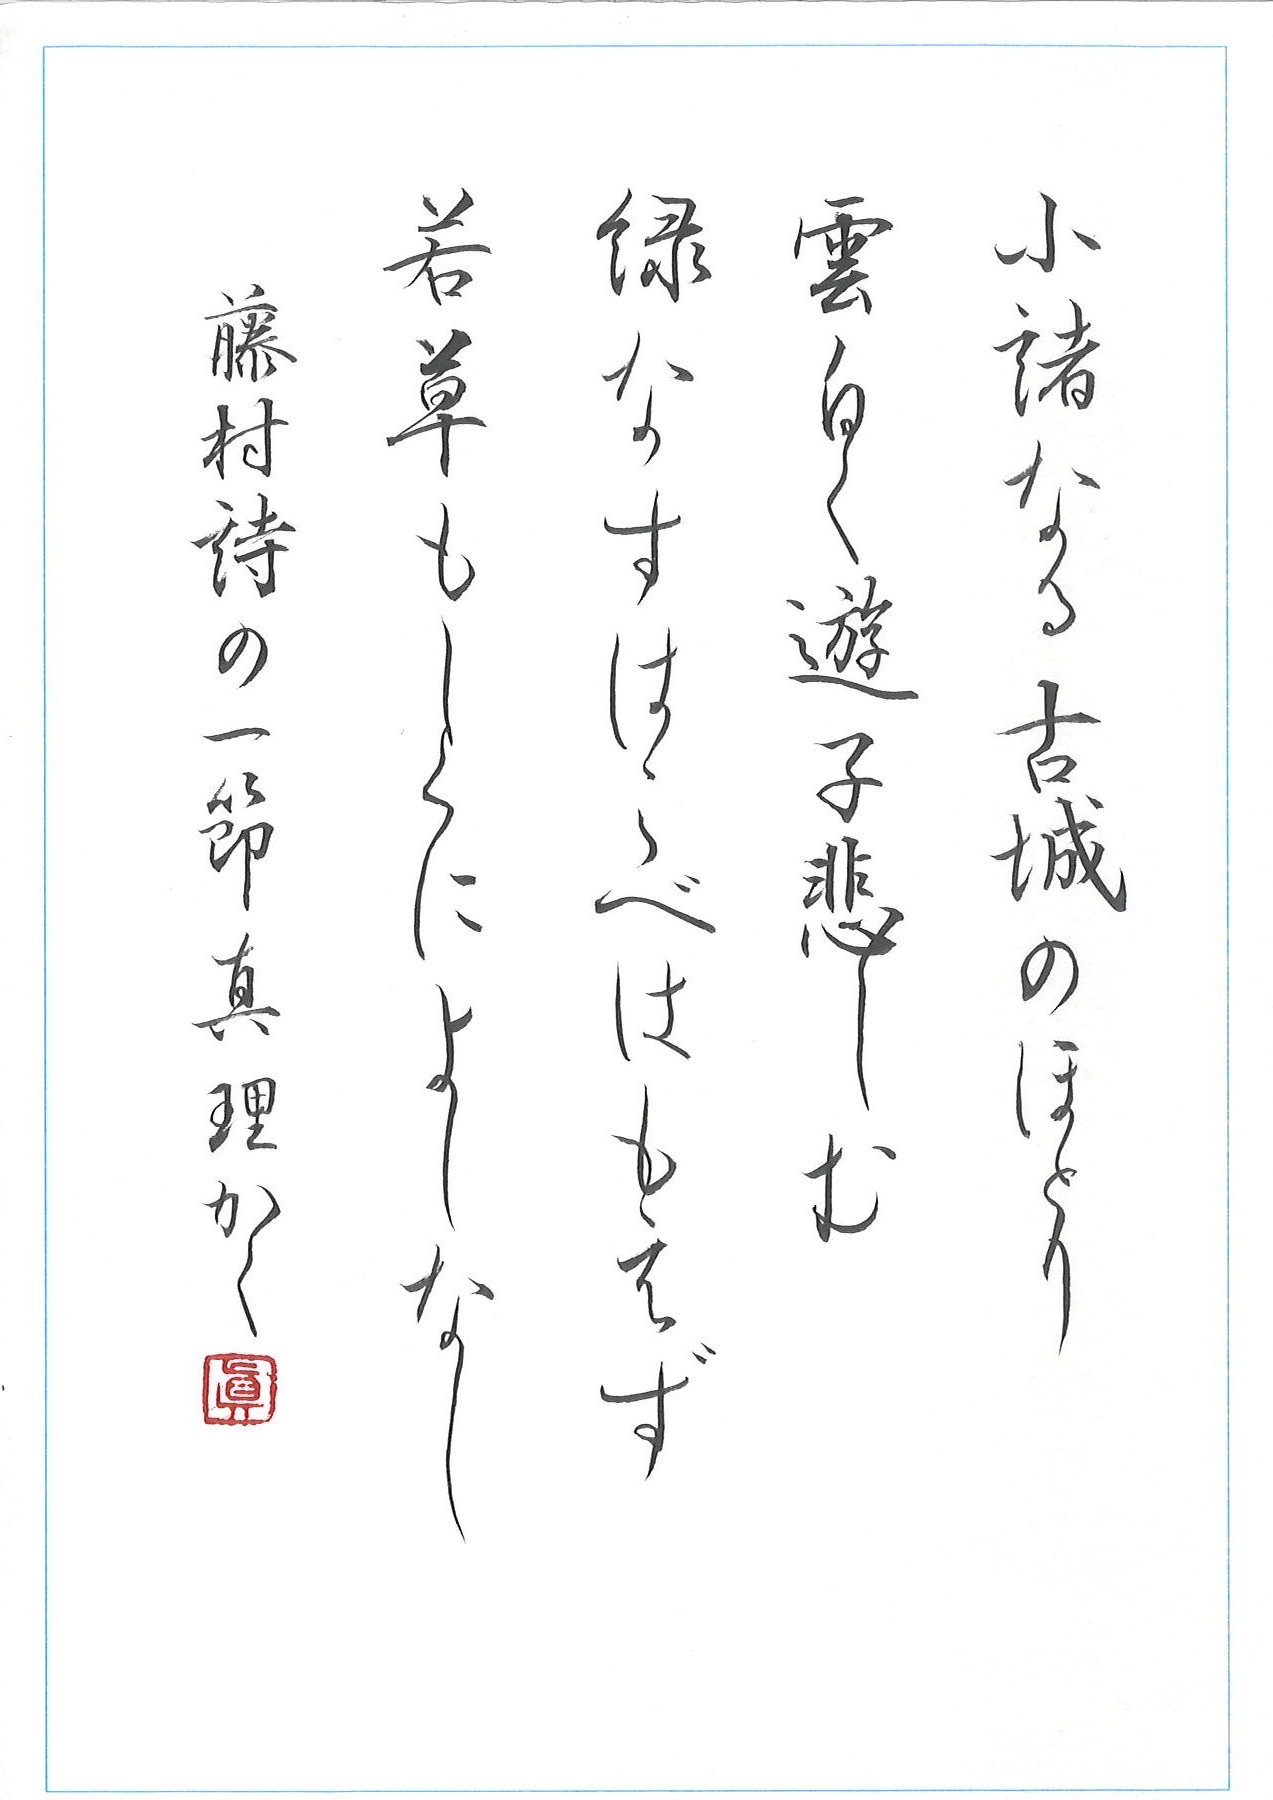 小諸なる古城のほとり
雲白く遊子悲しむ
緑なすはこべはもえず
若草もしくによしなし
藤村詩の一節 真理かく
眞